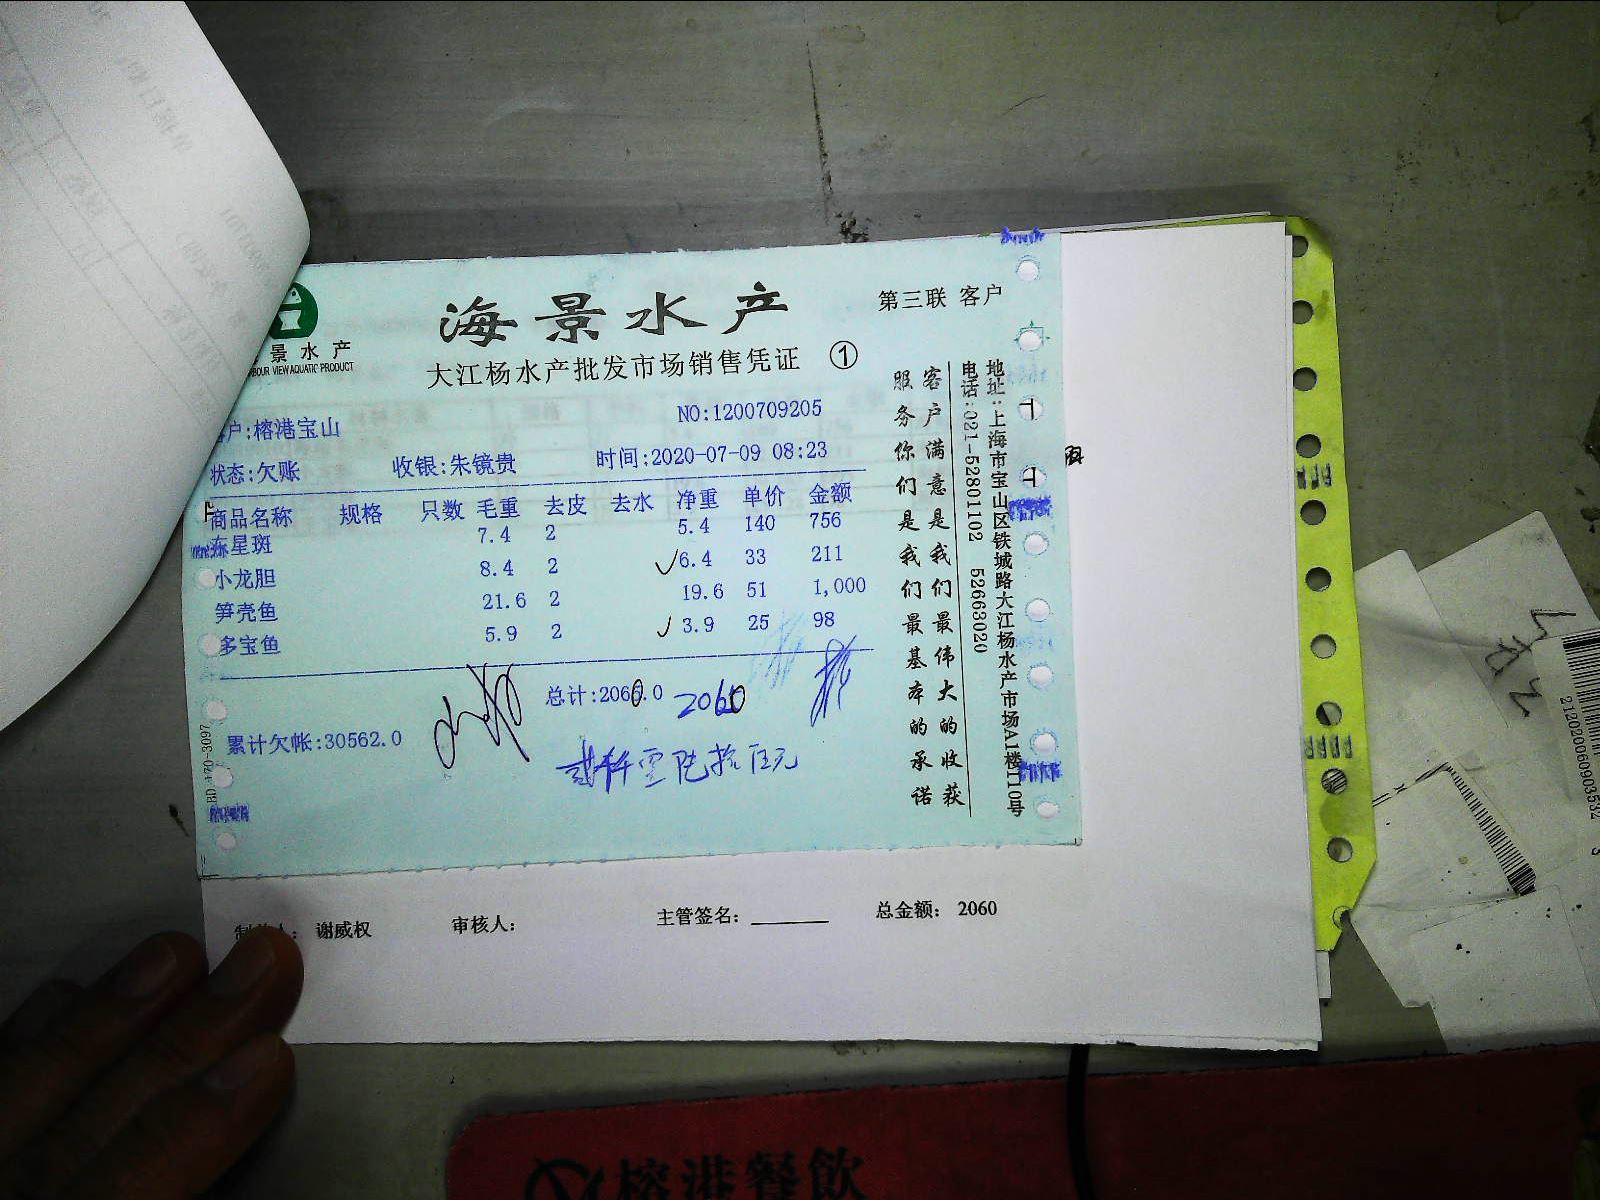 海景水产
第三联 客户
景水产
BOUR VIEW AQUATIC PRODUCT
大江杨水产批发市场销售凭证 ①
户:榕港宝山
NO:1200709205
状态:欠账 收银:朱镜贵 时间:2020-07-09 08:23
商品名称 规格 只数 毛重 去皮 去水 净重 单价 金额
东星斑 7.4 2 5.4 140 756
小龙胆 8.4 2 ✓6.4 33 211
笋壳鱼 21.6 2 19.6 51 1,000
多宝鱼 5.9 2 ✓3.9 25 98
总计:2060.0 2060
累计欠帐:30562.0
贰仟零陆拾元
客户满意是我们最伟大的收获
服务你们是我们最基本的承诺
地址:上海市宝山区铁城路大江杨水产市场A1楼110号
电话:021-52801102 52663020
谢威权 审核人: 主管签名: 总金额: 2060
榕港餐飲
212020060903532 3